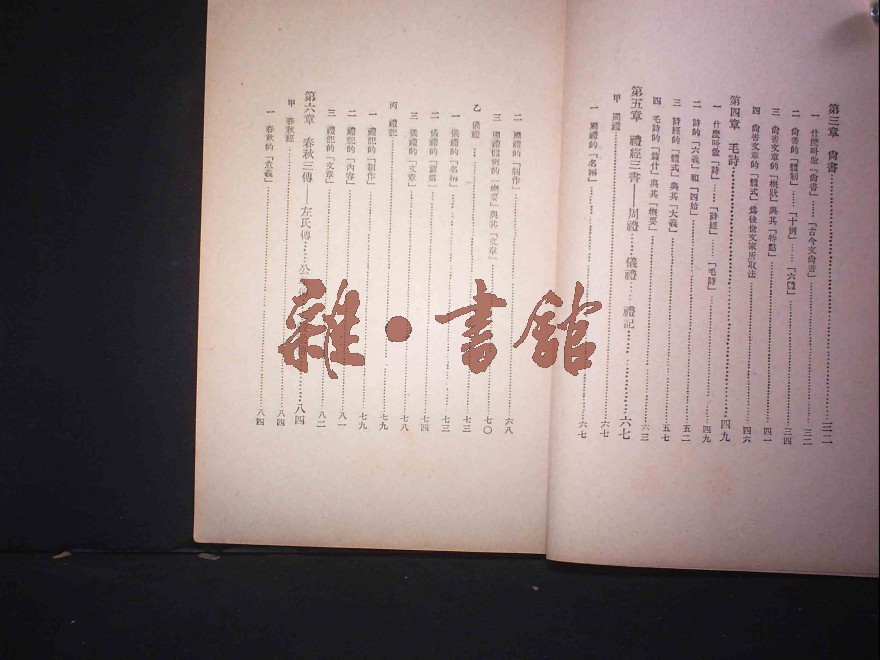 第三章　尙書………三二
一　什麽叫做「尙書」……「古今文尙書」………三二
二　尙書的「體制」……「十例」……「六體」………三四
三　尙書文章的「概狀」與其「特點」………四一
四　尙書文章的「體式」爲後世文家所取法………四六
第四章　毛詩………四九
一　什麽叫做「詩」……「詩經」……「毛詩」………四九
二　詩的「六義」和「四始」………五二
三　詩經的「體式」與其「大義」………五七
四　毛詩的「篇什」與其「概要」………六三
第五章　禮經三書——周禮……儀禮……禮記………六七
甲　周禮………六七
一　周禮的「名稱」………六七
二　周禮的「制作」………六八
三　周禮體例的「概要」與其「文章」………七〇
乙　儀禮………七三
一　儀禮的「名稱」………七三
二　儀禮的「篇第」………七四
三　儀禮的「文章」………七八
丙　禮記………七九
一　禮記的「制作」………七九
二　禮記的「內容」………八一
三　禮記的「文章」………八二
第六章　春秋三傳——左氏傳……公………八四
甲　春秋經………八四
一　春秋的「意義」………八四
雜·書舘